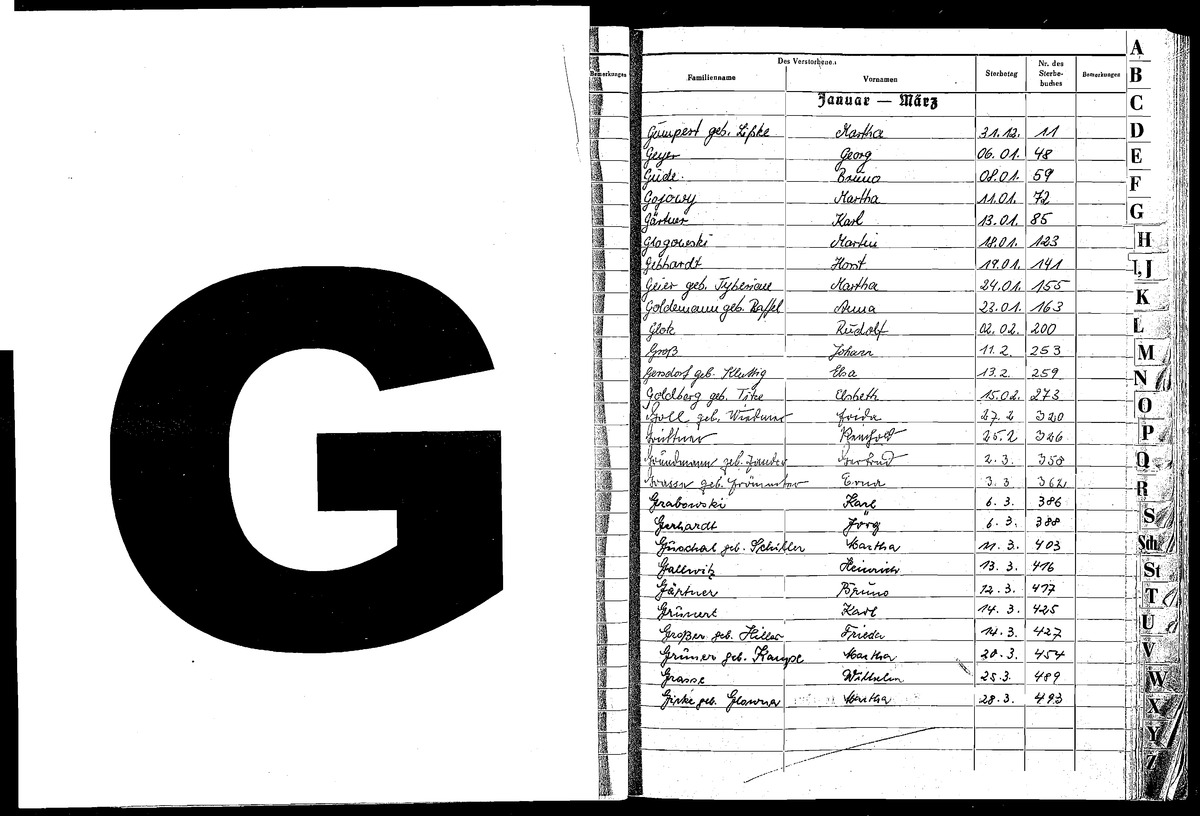 G
Bemerkungen
Des Verstorbenen
Familienname Vornamen Sterbetag Nr. des Sterbe-buches Bemerkungen
Januar — März
Gumpert geb. Lipke Martha 31.12. 11
Geyer Georg 06.01. 48
Gude Bruno 08.01. 59
Gojowy Martha 11.01. 72
Gärtner Karl 13.01. 85
Glogowski Martin 18.01. 123
Gebhardt Horst 19.01. 141
Geier geb. Martha 24.01. 155
Goldemann geb. Raffel Anna 23.01. 163
Glok Rudolf 02.02. 200
Groß Johann 11.2. 253
Gersdorf geb. Kluttig Elsa 13.2. 259
Goldberg geb. Titze Elsbeth 15.02. 273
Goll geb. Wiedmer Frida 27.2 320
Reinhold 25.2 326
Gründmann geb. Zander Gertrud 2.3. 358
Grasse geb. Erna 3.3 362
Grabowski Karl 6.3. 386
Gerhardt Jörg 6.3. 388
Guschal geb. Schibler Martha 11.3. 403
Gallwitz Heinrich 13.3. 416
Gärtner Bruno 12.3. 417
Grunert Karl 14.3. 425
Großer geb. Hiller Frieda 14.3. 427
Gruner geb. Kampe Martha 20.3. 454
Grasse Wilhelm 25.3. 489
Girke geb. Glowna Martha 28.3. 493
A
B
C
D
E
F
G
H
I, J
K
L
M
N
O
P
Q
R
S
Sch
St
T
U
V
W
X
Y
Z